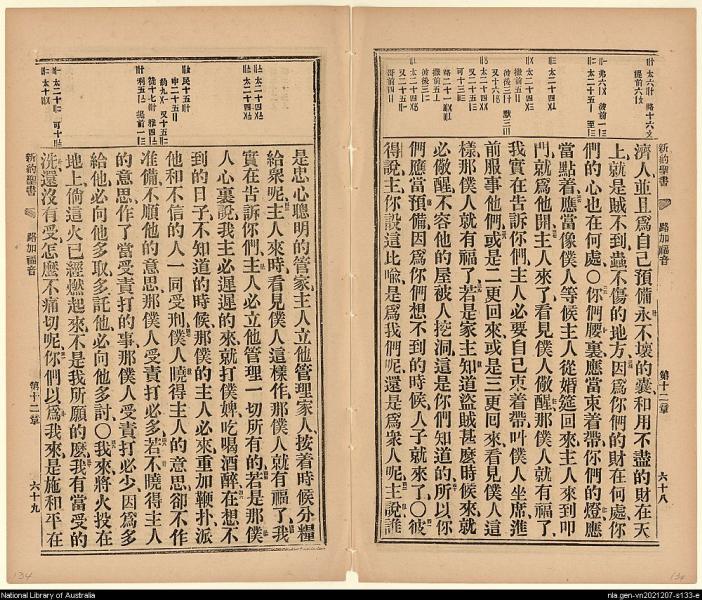 濟人並且爲自己預備永不壞的囊和用不盡的財在天
上就是賊不到蟲不傷的地方因爲你們的財在何處你
們的心也在何處〇你們腰裏應當束着帶你們的燈應
當點着應當像僕人等候主人從婚筵回來主人來到叩
門就爲他開主人來了看見僕人儆醒那僕人就有福了
我實在告訴你們主人必要自己束着帶叫僕人坐席進
前服事他們或是二更回來或是三更回來看見僕人這
樣那僕人就有福了若是家主知道盜賊甚麼時候來就
必儆醒不容他的屋被人挖洞這是你們知道的所以你
們應當預備因爲你們想不到的時候人子就來了〇彼
得說主你設這比喻是爲我們呢還是爲衆人呢主說誰
新約聖書 路加福音 第十二章 六十八
是忠心聰明的管家主人立他管理家人按着時候分糧
給衆呢主人來時看見僕人這樣作那僕人就有福了我
實在告訴你們主人必立他管理一切所有的若是那僕
人心裏說我主必遲遲的來就打僕婢吃喝酒醉在想不
到的日子不知道的時候那僕的主人必來重加鞭扑派
他和不信的人一同受刑僕人曉得主人的意思卻不作
準備不順他的意思那僕人受責打必多若不曉得主人
的意思作了當受責打的事那僕人受責打必少因爲多
給他必向他多取多託他必向他多討〇我來將火投在
地上倘這火已經燃起來不是我所願的麼我有當受的
洗還沒有受怎麼不痛切呢你們以爲我來是施和平在
新約聖書 路加福音 第十二章 六十九
134
National Library of Australia
nla.gen-vn2021207-s133-e